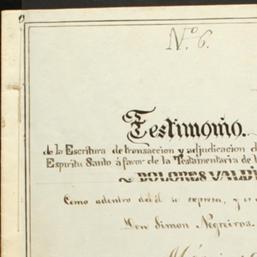 Nº 6.
Testimonio.
de la Escritura de transaccion y adjudicacion d
Espiritu Santo á favor de la Testamentaria de
DOLORES VALD
Como adentro de él se espresa, y
Don Simon Negreiros.